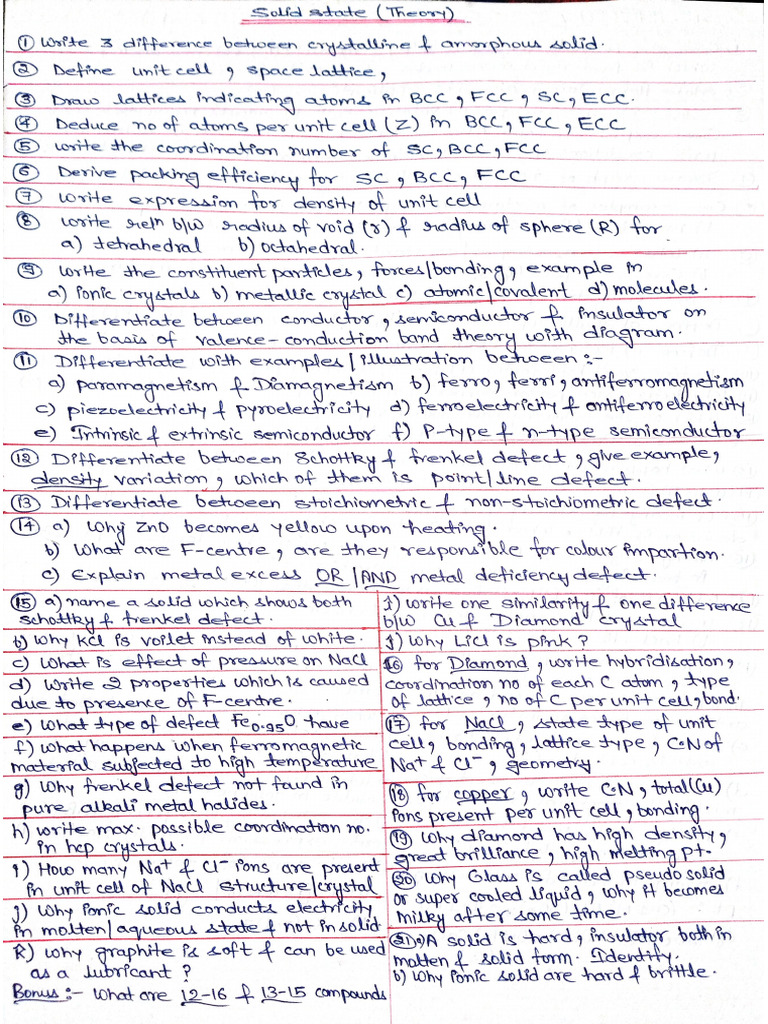 Solid state (Theory)
① Write 3 difference between crystalline & amorphous solid.
② Define unit cell, space lattice,
③ Draw lattices indicating atoms in BCC, FCC, SC, ECC.
④ Deduce no of atoms per unit cell (Z) in BCC, FCC, ECC
⑤ write the coordination number of SC, BCC, FCC
⑥ Derive packing efficiency for SC, BCC, FCC
⑦ Write expression for density of unit cell
⑧ write reln b/w radius of void (r) & radius of sphere (R) for
a) tetrahedral b) octahedral.
⑨ Write the constituent particles, forces/bonding, example in
a) ionic crystals b) metallic crystal c) atomic/covalent d) molecules.
⑩ Differentiate between conductor, semiconductor & insulator on
the basis of valence-conduction band theory with diagram.
⑪ Differentiate with examples/illustration between :-
a) paramagnetism & Diamagnetism b) ferro, ferri, antiferromagnetism
c) piezoelectricity & pyroelectricity d) ferroelectricity & antiferroelectricity
e) Intrinsic & extrinsic semiconductor f) P-type & n-type semiconductor
⑫ Differentiate between Schottky & frenkel defect, give example,
density variation, which of them is point/line defect.
⑬ Differentiate between stoichiometric & non-stoichiometric defect.
⑭ a) Why ZnO becomes yellow upon heating.
b) What are F-centre, are they responsible for colour impartion.
c) Explain metal excess OR/AND metal deficiency defect.
⑮ a) name a solid which shows both
schottky & frenkel defect.
b) Why KCl is voilet instead of white.
c) What is effect of pressure on NaCl
d) Write 2 properties which is caused
due to presence of F-centre.
e) What type of defect Fe0.95O have
f) What happens when ferromagnetic
material subjected to high temperature
g) Why frenkel defect not found in
pure alkali metal halides.
h) write max. possible coordination no.
in hcp crystals.
i) How many Na+ & Cl- ions are present
in unit cell of NaCl structure/crystal
j) Why ionic solid conducts electricity
in molten/aqueous state & not in solid
K) Why graphite is soft & can be used
as a lubricant ?
Bonus :- What are 12-16 & 13-15 compounds
j) write one similarity & one difference
b/w Cu & Diamond crystal
j) Why LiCl is pink ?
⑯ for Diamond, write hybridisation,
coordination no of each C atom, type
of lattice, no of C per unit cell, bond.
⑰ for NaCl, state type of unit
cell, bonding, lattice type, C.N of
Na+ & Cl-, geometry.
⑱ for copper, write C.N, total (Cu)
ions present per unit cell, bonding.
⑲ Why diamond has high density,
great brilliance, high melting pt.
⑳ Why Glass is called pseudo solid
or super cooled liquid, why it becomes
milky after some time.
㉑ a) A solid is hard, insulator both in
molten & solid form. Identify.
b) Why ionic solid are hard & brittle.